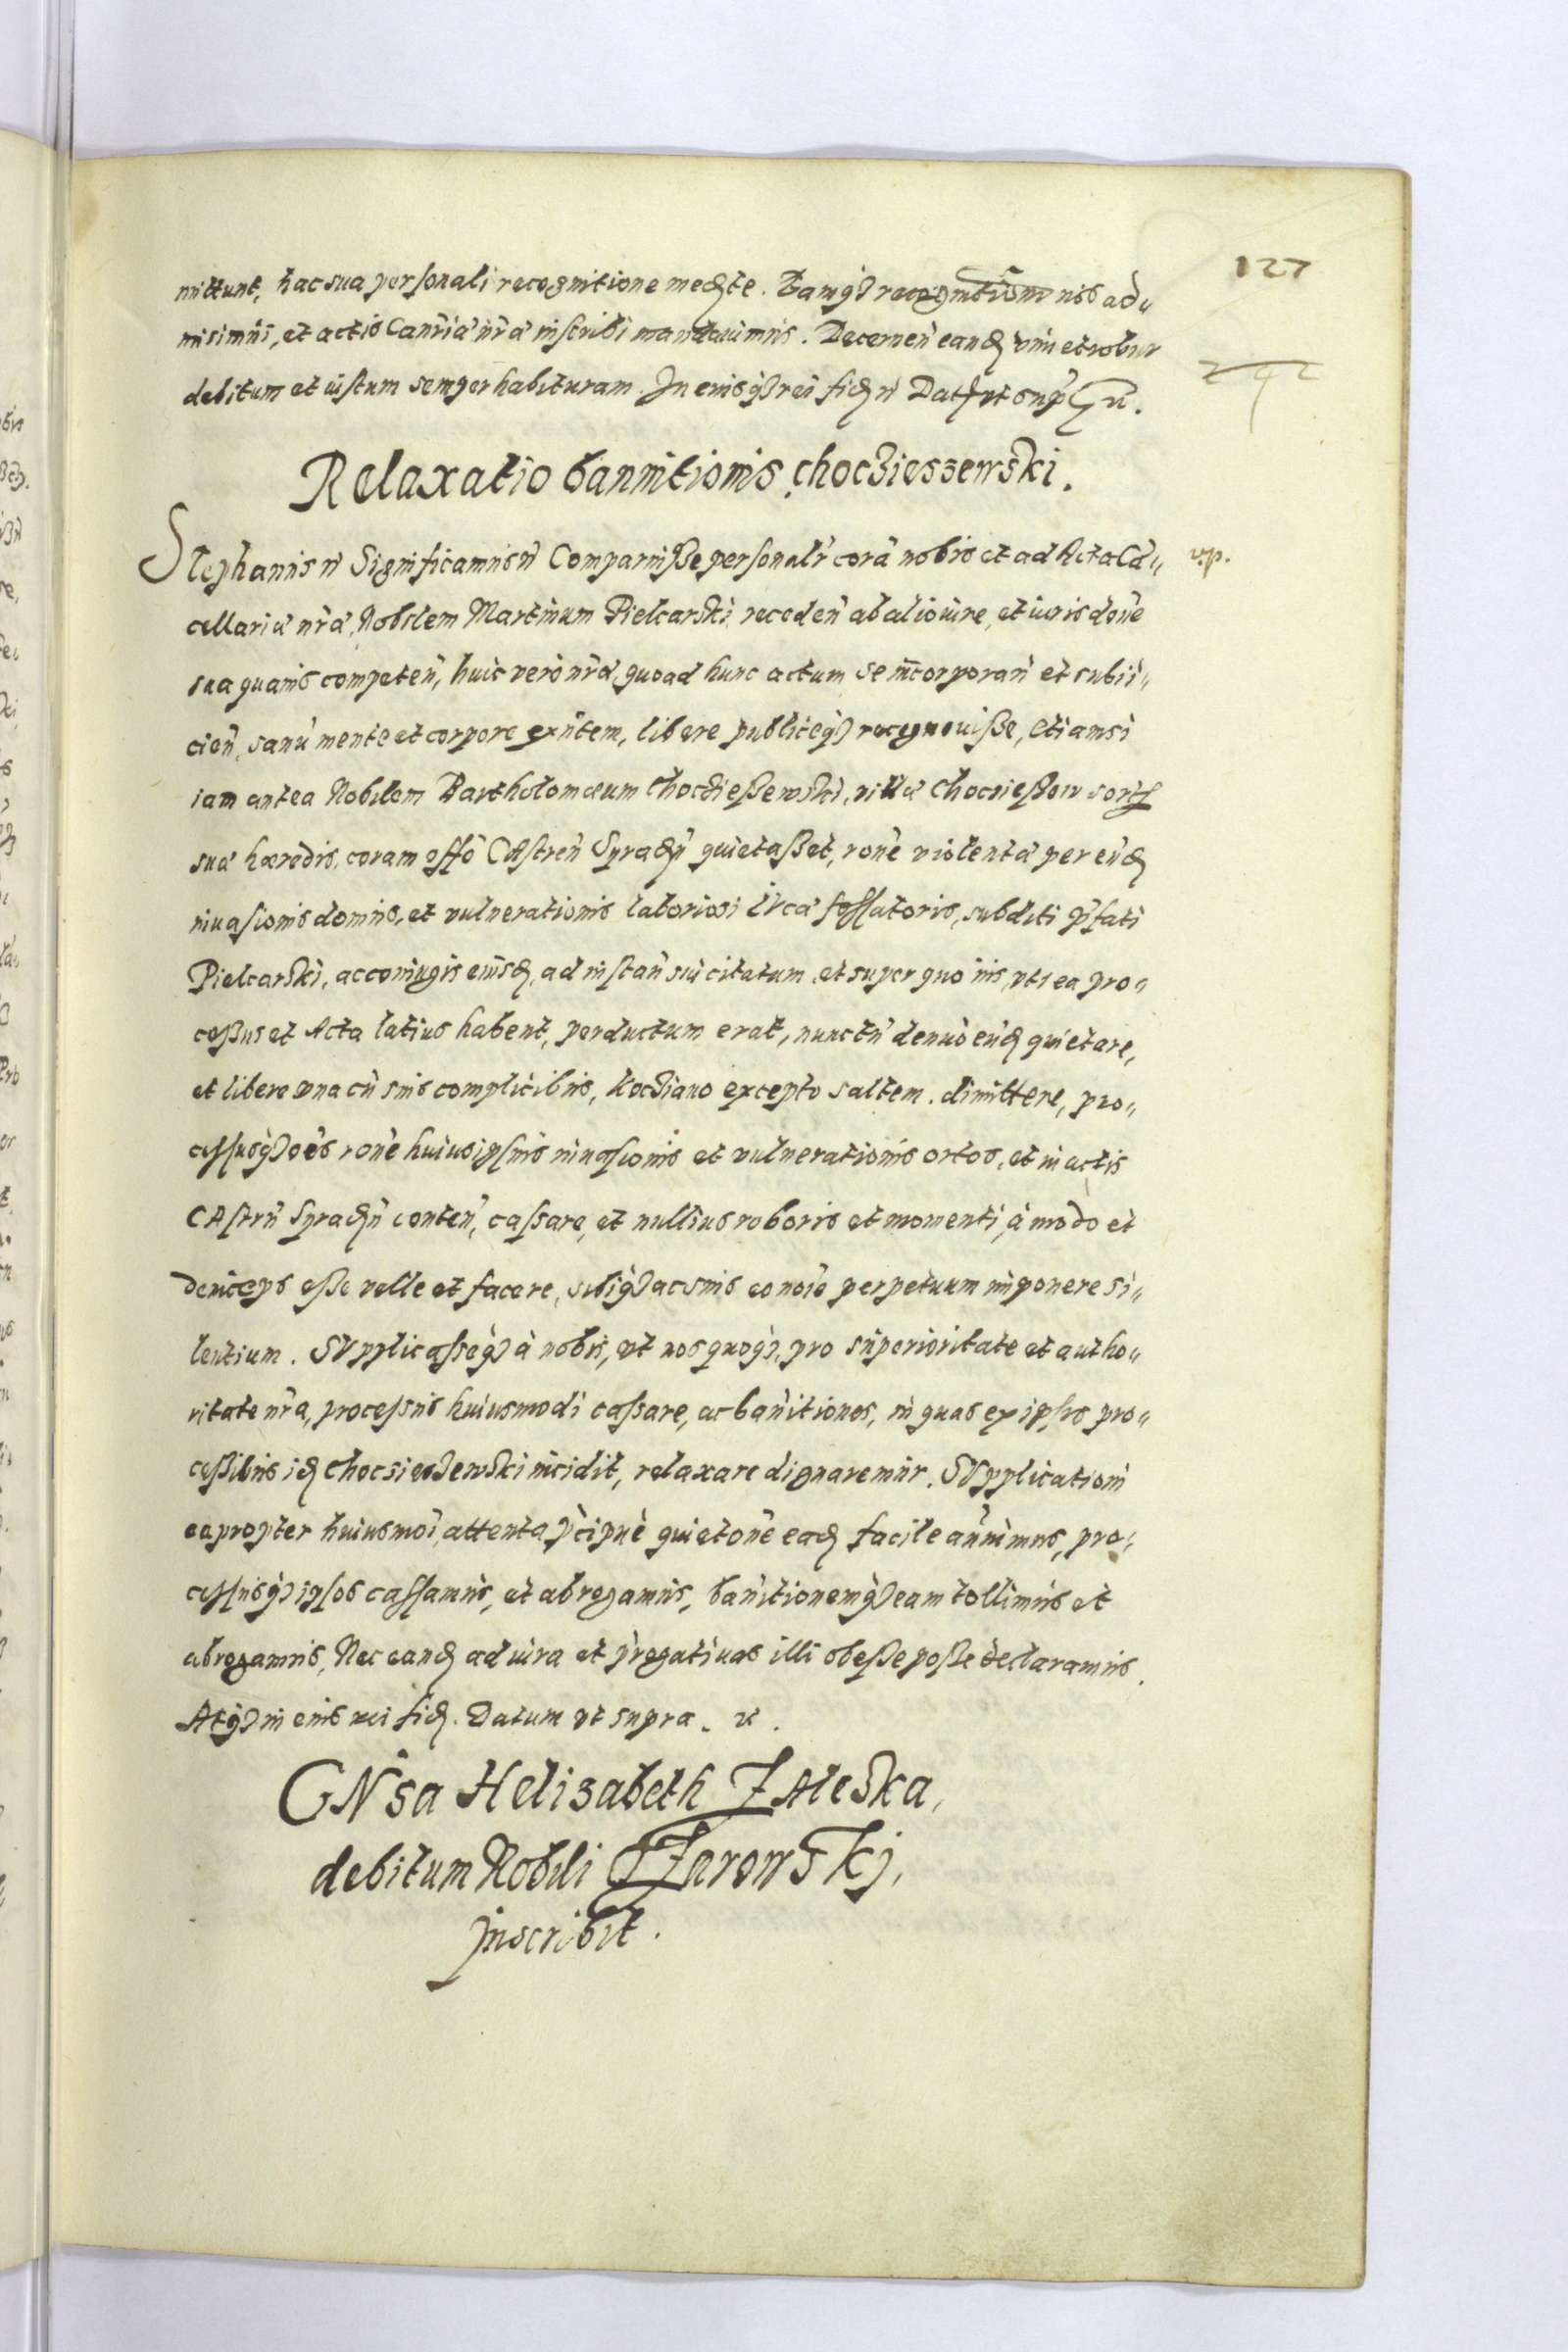 127
mittunt, hac sua personali recognitione medte. Eamq3 recognitionē nos ad„
misimus, et actis Canriæ nræ inscribi mandauimus. Decernen̄ eand vim et robur
debitum et iustum semper habituram. In cuius q3 rei fid n̄ Dat ut sup̄
242
Relaxatio bannitionis Choc3ieszewski.
Stephanus n̄ Significamus n̄ Comparuisse personalr̄ corā nobis et ad Acta Cā„
v.p.
cellariæ nræ, Nobilem Martinum Pielcarski, receden̄ ab alio iure, et iurisdone
sua quauis competen̄, huic vero nræ, quoad hunc actum se incorporan̄ et subii„
cien̄, sanū mente et corpore exn̄tem, libere publiceq3 recognouisse, Etiamsi
iam antea Nobilem Bartholomæum Choc3ieszewski, villæ Choczieszow sort
suæ hæredis, coram offō CAstren̄ Syradn̄ quietasset, rone violentæ per eūd
inuasionis domus, et vulnerationis laboriosi Lucæ fossatoris, subditi p̄fati
Pielcarski, ac coniugis eiusd, ad instan̄ sui citatum et super quo iūs, uti ea pro„
cessus et Acta latius habent, perductum erat, nunc tn̄ denuò eūd quietare,
et libere vna cū suis complicibus, kocziano excepto saltem. dimittere, pro„
cessusq3 oēs rone huius ipsius inuasionis et vulnerationis ortos, et in actis
CAstrn̄ Syradn̄ conten̄, cassare, et nullius roboris et momenti, à modo et
deinceps esse velle et facere, sibiq3 ac suis eo noīe perpetuum imponere si„
lentium. SVpplicasseq3 à nobis, vt nos quoq3, pro superioritate et autho„
ritate nrā, processus huiusmodi cassare, ac banitiones, in quas ex ipsis pro„
cessibus id Chocsieszewski incidit, relaxare dignaremur. SVpplicationi
eapropter huiusmoī, attenta p̄cipuè quietone ead facile annuimus, pro„
cessusq3 ipsos cassamus, et abrogamus, banitionemq3 eam tollimus et
abrogamus, Nec eand ad iura et p̄rogatiuas illi obesse posse declaramus.
Atq3 in cuius rei fid. Datum vt supra. n̄.
GNsa Helizabeth ZAleska,
debitum Nobili Czarowskj,
inscribit.